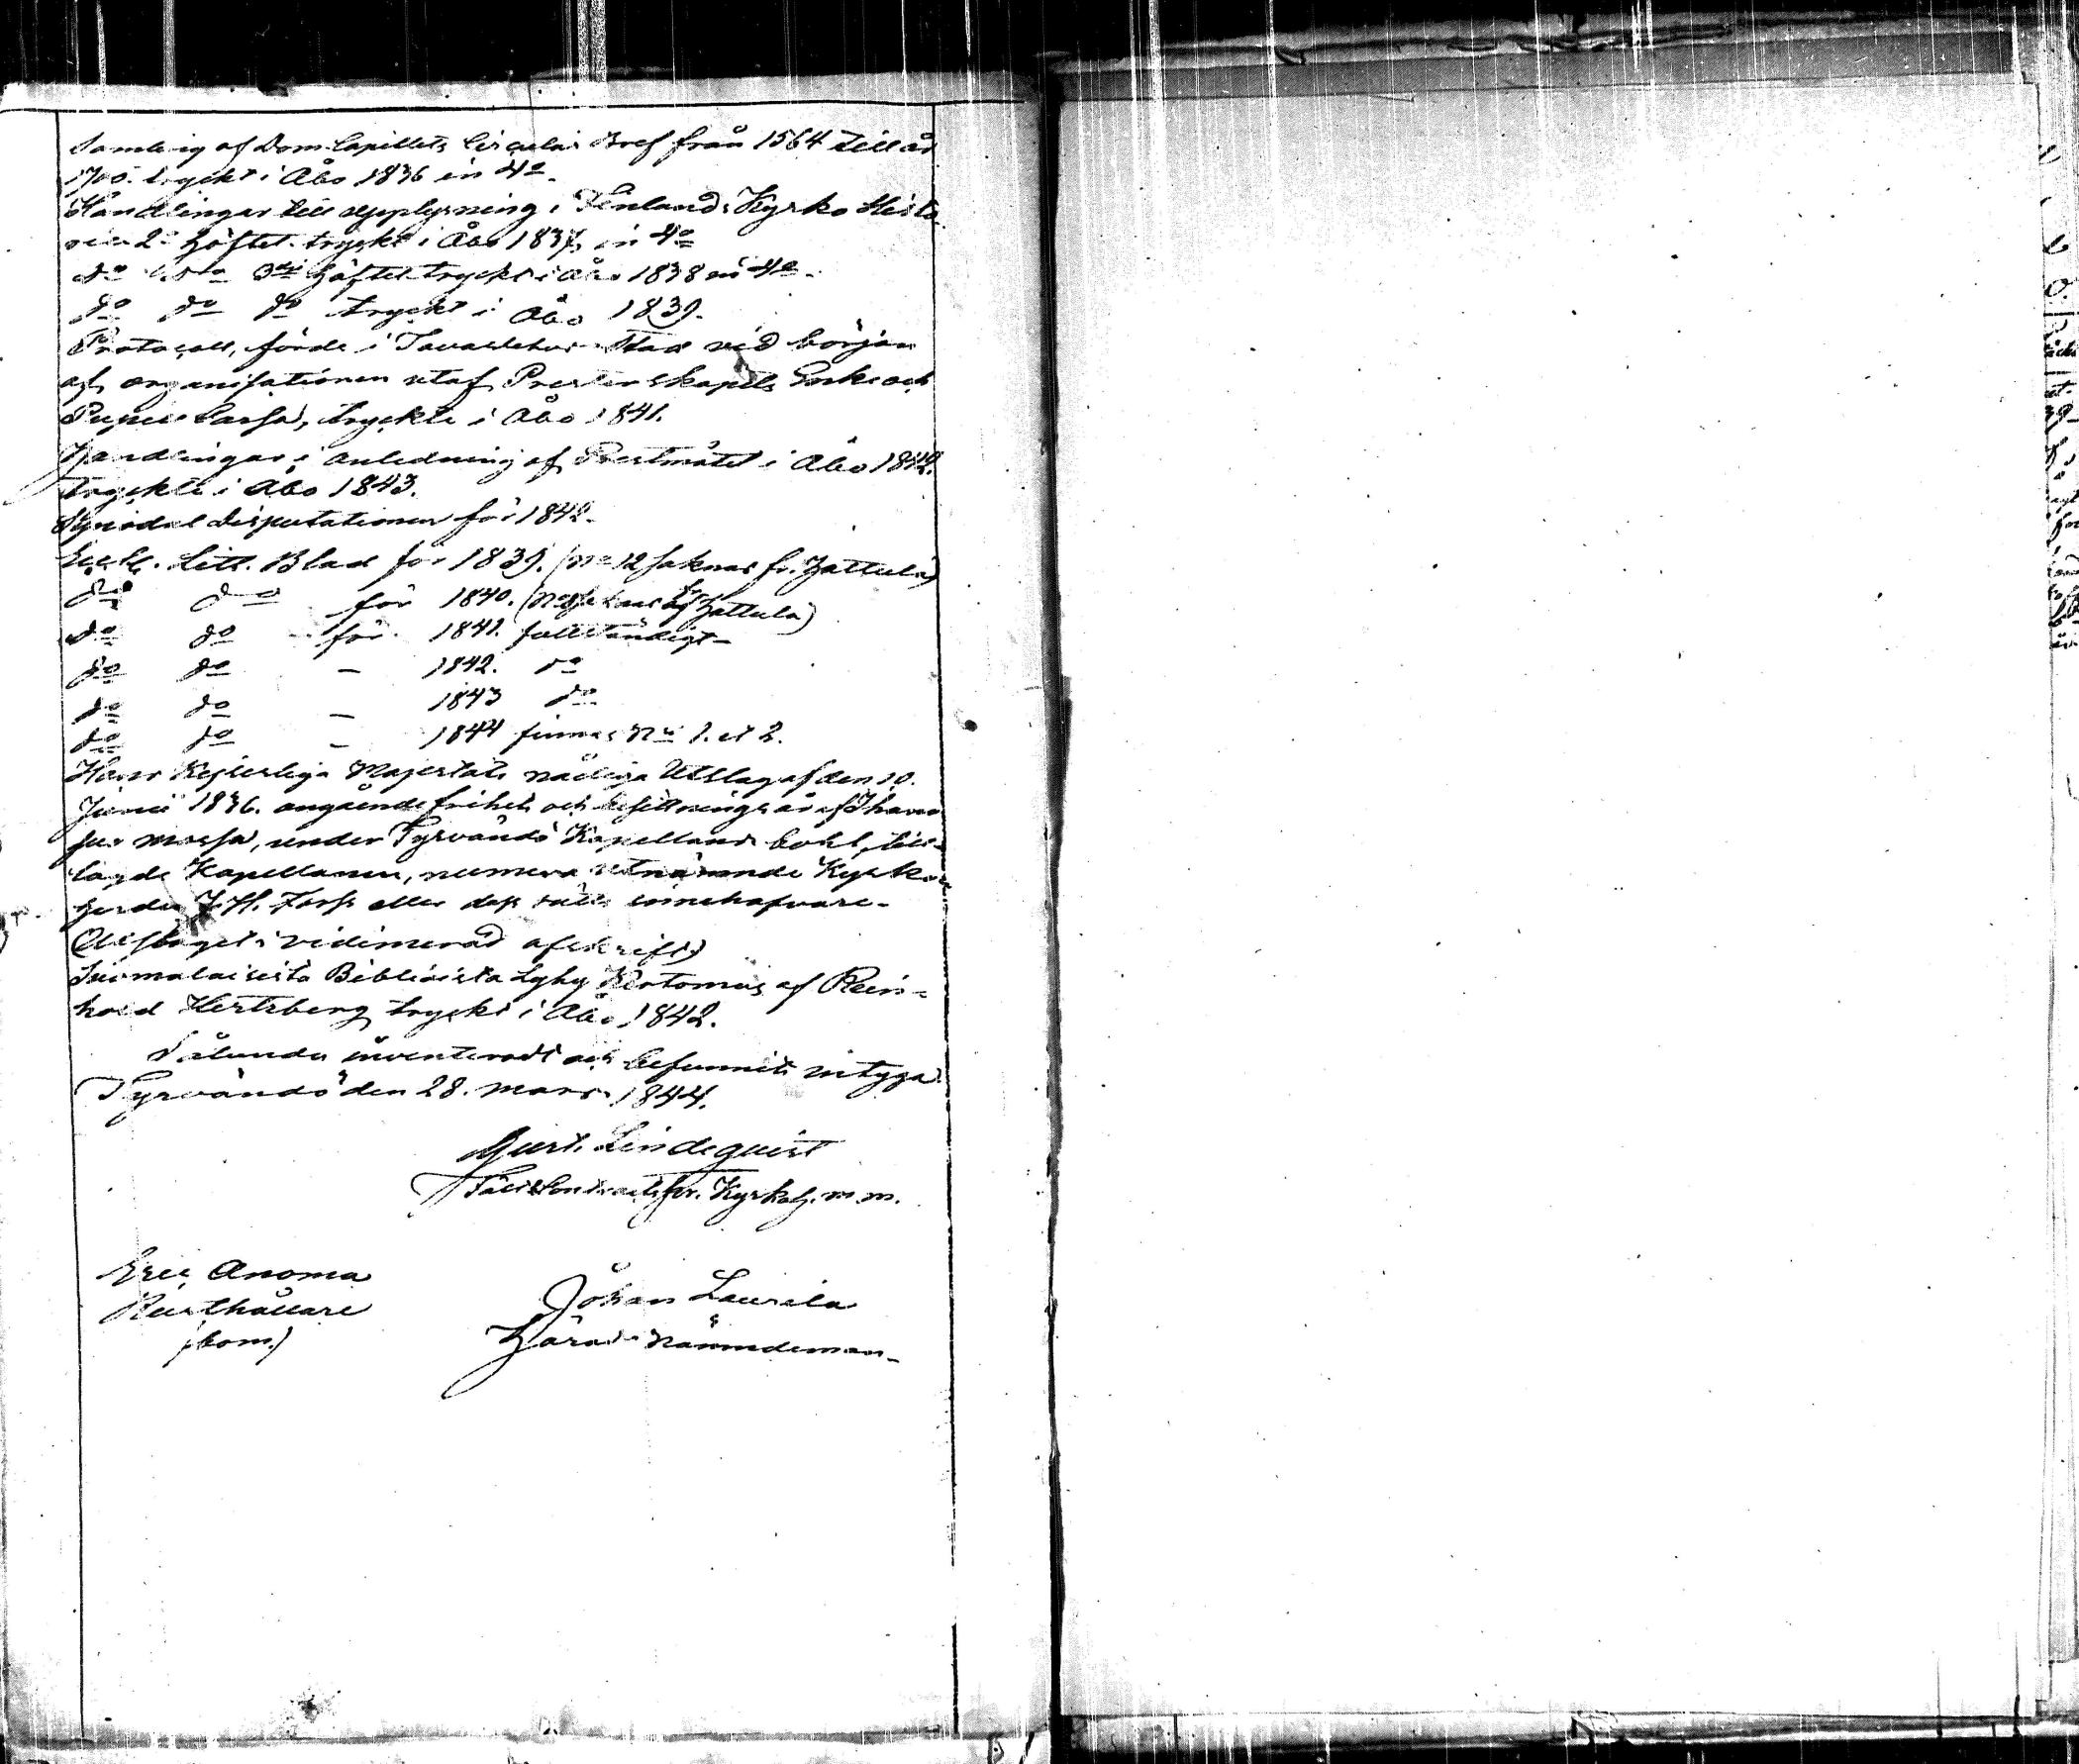 Samling af Dom Capitlets Circulair Bref från 1564 till år
1700. tryckt i Åbo 1836 in 4o.
Handlingar till upplysning i Finlands Kyrko Histo
rien 2a Häftet. tryckt i Åbo 1837, in 4o
do do 3dje Häftet tryckt i Åbo 1838 in 4o.
do do do tryckt i Åbo 1839.
Protocoll, förde i Tavastehus Stad vid början
af organisationen utaf Presterskapets Enke och
Pupill Cassa, tryckte i Åbo 1841.
Handlingar i anledning af Prestmötet i Åbo 1842.
tryckte i Åbo 1843.
Synodal disputationen för 1842.
Eccl. Litt. Blad för 1839. (No 12 saknas fr. Hattula)
do do för 1840. (No saknas fr Hattula)
do do för 1841. fullständigt
do do - 1842. do
do do - 1843 do
do do - 1844 finnas No 1. et 2.
Hans Kejserliga Majestäts nådiga Utslag af den 10.
Junii 1836. angående frihets och besittnings år af
mossa, under Tyrvändö Kapellans bohl, till-
lagde Kapellanen, numera utnämnde Kyrko
herden J. H. Forss eller dess rätts innehafvare-
(Utslaget i vidimerad afskrift)
Suomalaisista Biblioista Lyhy Kertomus af Rein-
hold Hertzberg tryckt i Åbo 1842.
Sålunda inventeradt och befunnit intyga.
Tyrvändö den 28. Mars 1844.
Gust. Lindequist
Kyrkoh. m.m.
Eric Anoma
Rusthållare
(bom.)
Johan Laurila
Härads Nämndeman